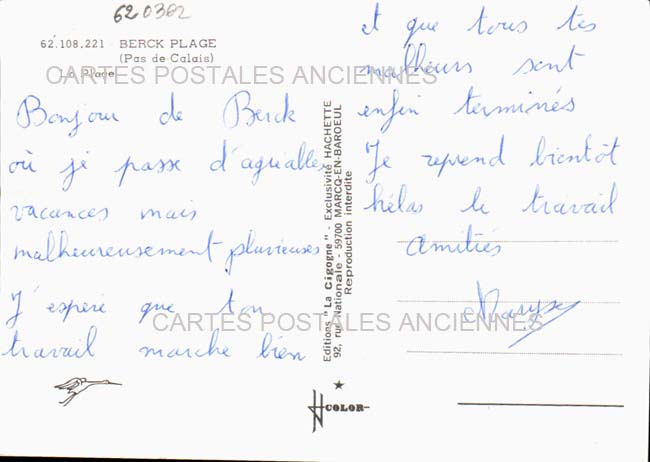 620362
62.108.221 - BERCK PLAGE
(Pas de Calais)
La Plage
CARTES POSTALES ANCIENNES
Bonjour de Berck
où je passe d'agréables
vacances mais
malheureusement pluvieuses
J'espère que ton
CARTES POSTALES ANCIENNES
travail marche bien
Editions "La Cigogne" - Exclusivité HACHETTE
92, rue Nationale - 59700 MARCQ-EN-BAROEUL
Reproduction interdite
COLOR
et que tous tes
malheurs sont
enfin terminés
Je reprend bientôt
hélas le travail
Amitiés
Maryse